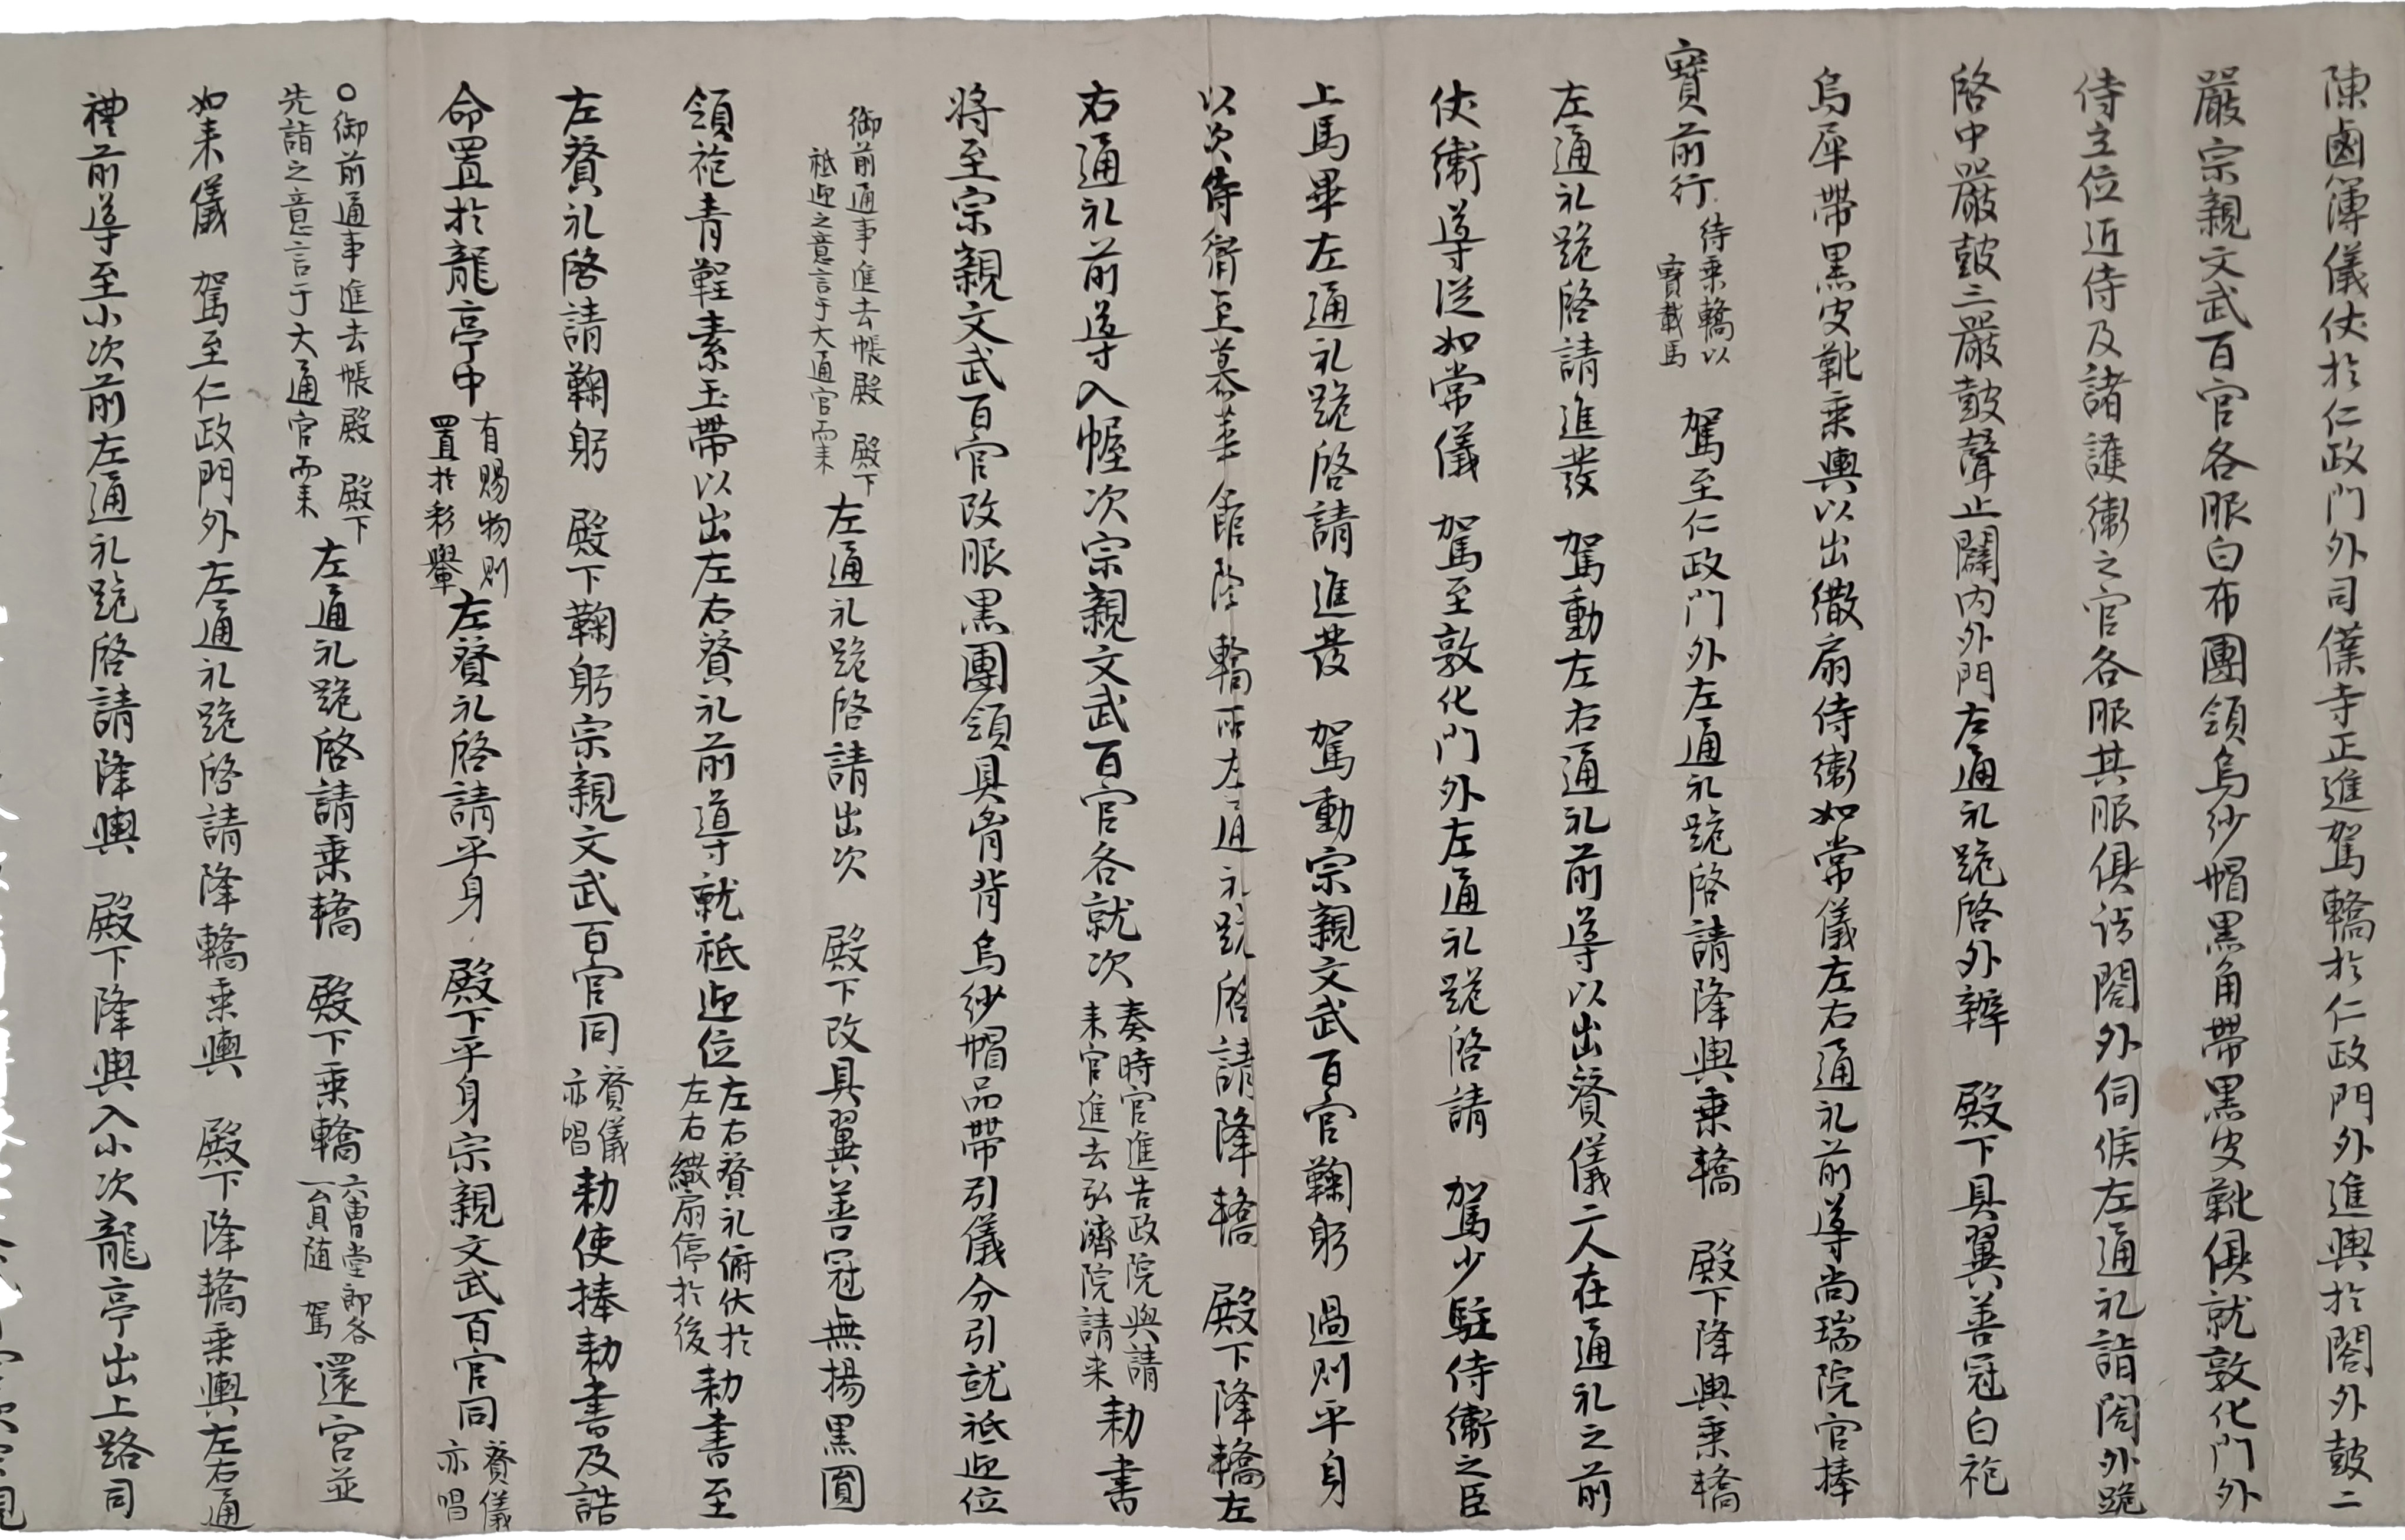 陳鹵簿儀仗於仁政門外司僕寺正進駕轎於仁政門外進輿於閤外鼓二
嚴宗親文武百官各服白布團領烏紗帽黑角帶黑皮靴俱就敦化門外
侍立位近侍及諸護衛之官各服其服俱詣閤外伺候左通礼詣閤外跪
啓中嚴鼓三嚴鼓聲止闢內外門左通礼跪啓外辦 殿下具翼善冠白袍
烏犀帶黑皮靴乗輿以出繖扇侍衛如常儀左右通礼前導尚瑞院官捧
寶前行 待乗轎以寶載馬 駕至仁政門外左通礼跪啓請降輿乗轎 殿下降輿乗轎
左通礼跪啓請進發 駕動左右通礼前導以出賛儀二人在通礼之前
仗衛導從如常儀 駕至敦化門外左通礼跪啓請 駕少駐侍衛之臣
上馬畢左通礼跪啓請進發 駕動宗親文武百官鞠躬 過則平身
以次侍衛至慕華館降轎所左通礼跪啓請降轎 殿下降轎左
右通礼前導入幄次宗親文武百官各就次 奏時官進告政院與請来官進去弘濟院請来 勑書
將至宗親文武百官改服黑團領具胷背烏紗帽品帶引儀分引就祗迎位
御前通事進去帳殿 殿下祗迎之意言于大通官而来 左通礼跪啓請出次 殿下改具翼善冠無揚黑圓
領袍青鞓素玉帶以出左右賛礼前導就祗迎位 左右賛礼俯伏於左右繖扇停於後 勑書至
左賛礼啓請鞠躬 殿下鞠躬宗親文武百官同 賛儀亦唱 勑使捧勑書及誥
命置於龍亭中 有賜物則置於彩轝 左賛礼啓請平身 殿下平身宗親文武百官同 賛儀亦唱
○御前通事進去帳殿 殿下先詣之意言于大通官而来 左通礼跪啓請乗轎 殿下乗轎 六曹堂郎各一員随 駕 還宮並
如来儀 駕至仁政門外左通礼跪啓請降轎乗輿 殿下降轎乗輿左右通
禮前導至小次前左通礼跪啓請降輿 殿下降輿入小次龍亭由上路司